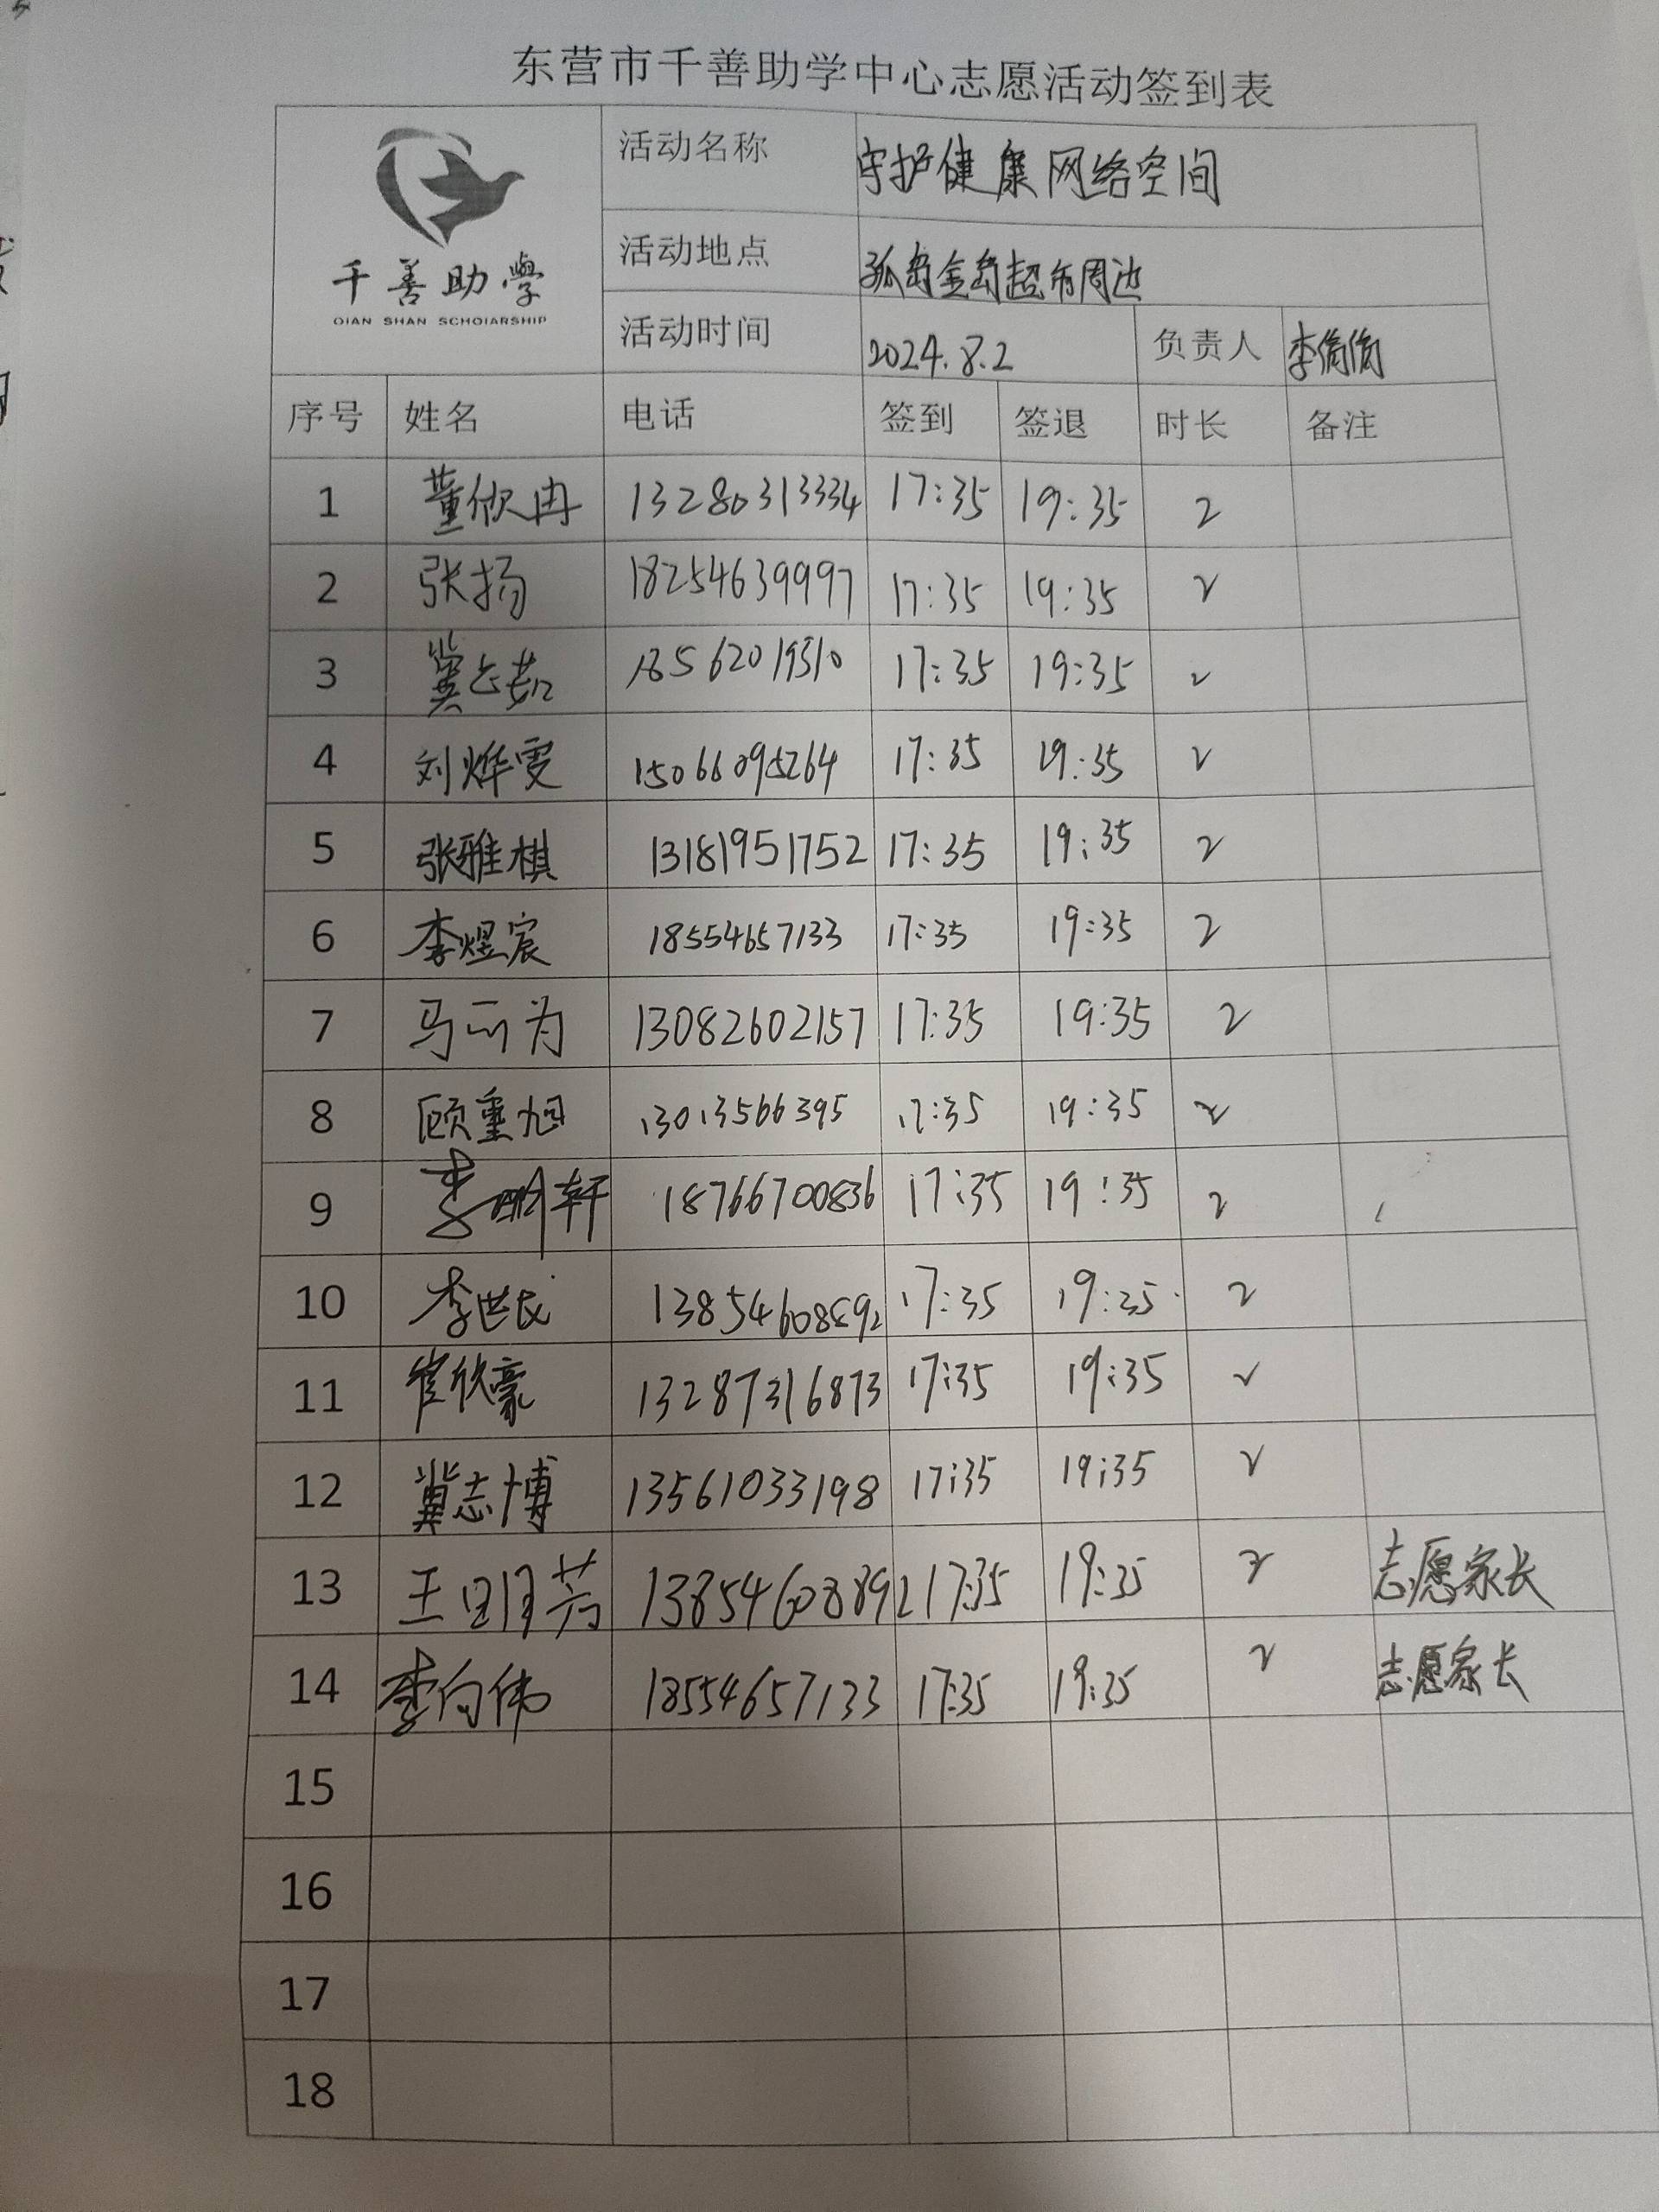 东营市千善助学中心志愿活动签到表
千善助學
QIAN SHAN SCHOIARSHIP
活动名称 守护健康网络空间
活动地点 孤岛金岛超市周边
活动时间 2024.8.2 负责人 李倩倩
序号 姓名 电话 签到 签退 时长 备注
1 董欣冉 13280313334 17:35 19:35 2
2 张扬 18254639997 17:35 19:35 2
3 冀志茹 17:35 19:35 2
4 刘烨雯 15066095264 17:35 19:35 2
5 张雅棋 13181951752 17:35 19:35 2
6 李煜宸 18554657133 17:35 19:35 2
7 马 为 13082602157 17:35 19:35 2
8 顾重旭 13013566395 17:35 19:35 2
9 李 轩 18766700836 17:35 19:35 2
10 李世民 17:35 19:35 2
11 崔欣豪 13287316873 17:35 19:35 2
12 冀志博 13561033198 17:35 19:35 2
13 王明芳 13854608892 17:35 19:35 2 志愿家长
14 李向伟 18554657133 17:35 19:35 2 志愿家长
15
16
17
18